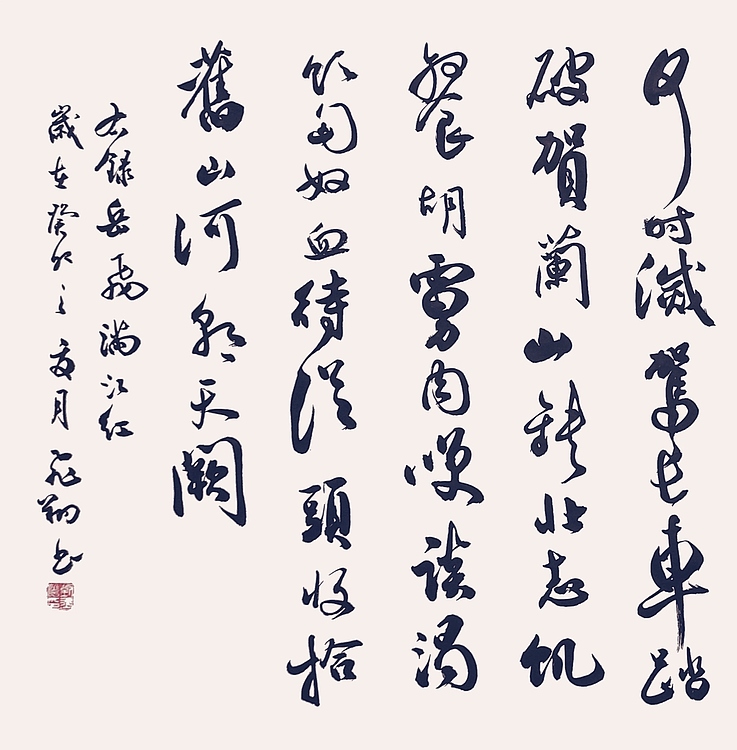 何時滅駕長車踏
破賀蘭山缺壯志飢
餐胡虜肉咲談渴
飲匈奴血待從頭收拾
舊山河朝天闕
右錄岳飛滿江紅
歲在癸卯之夏月飛翔書